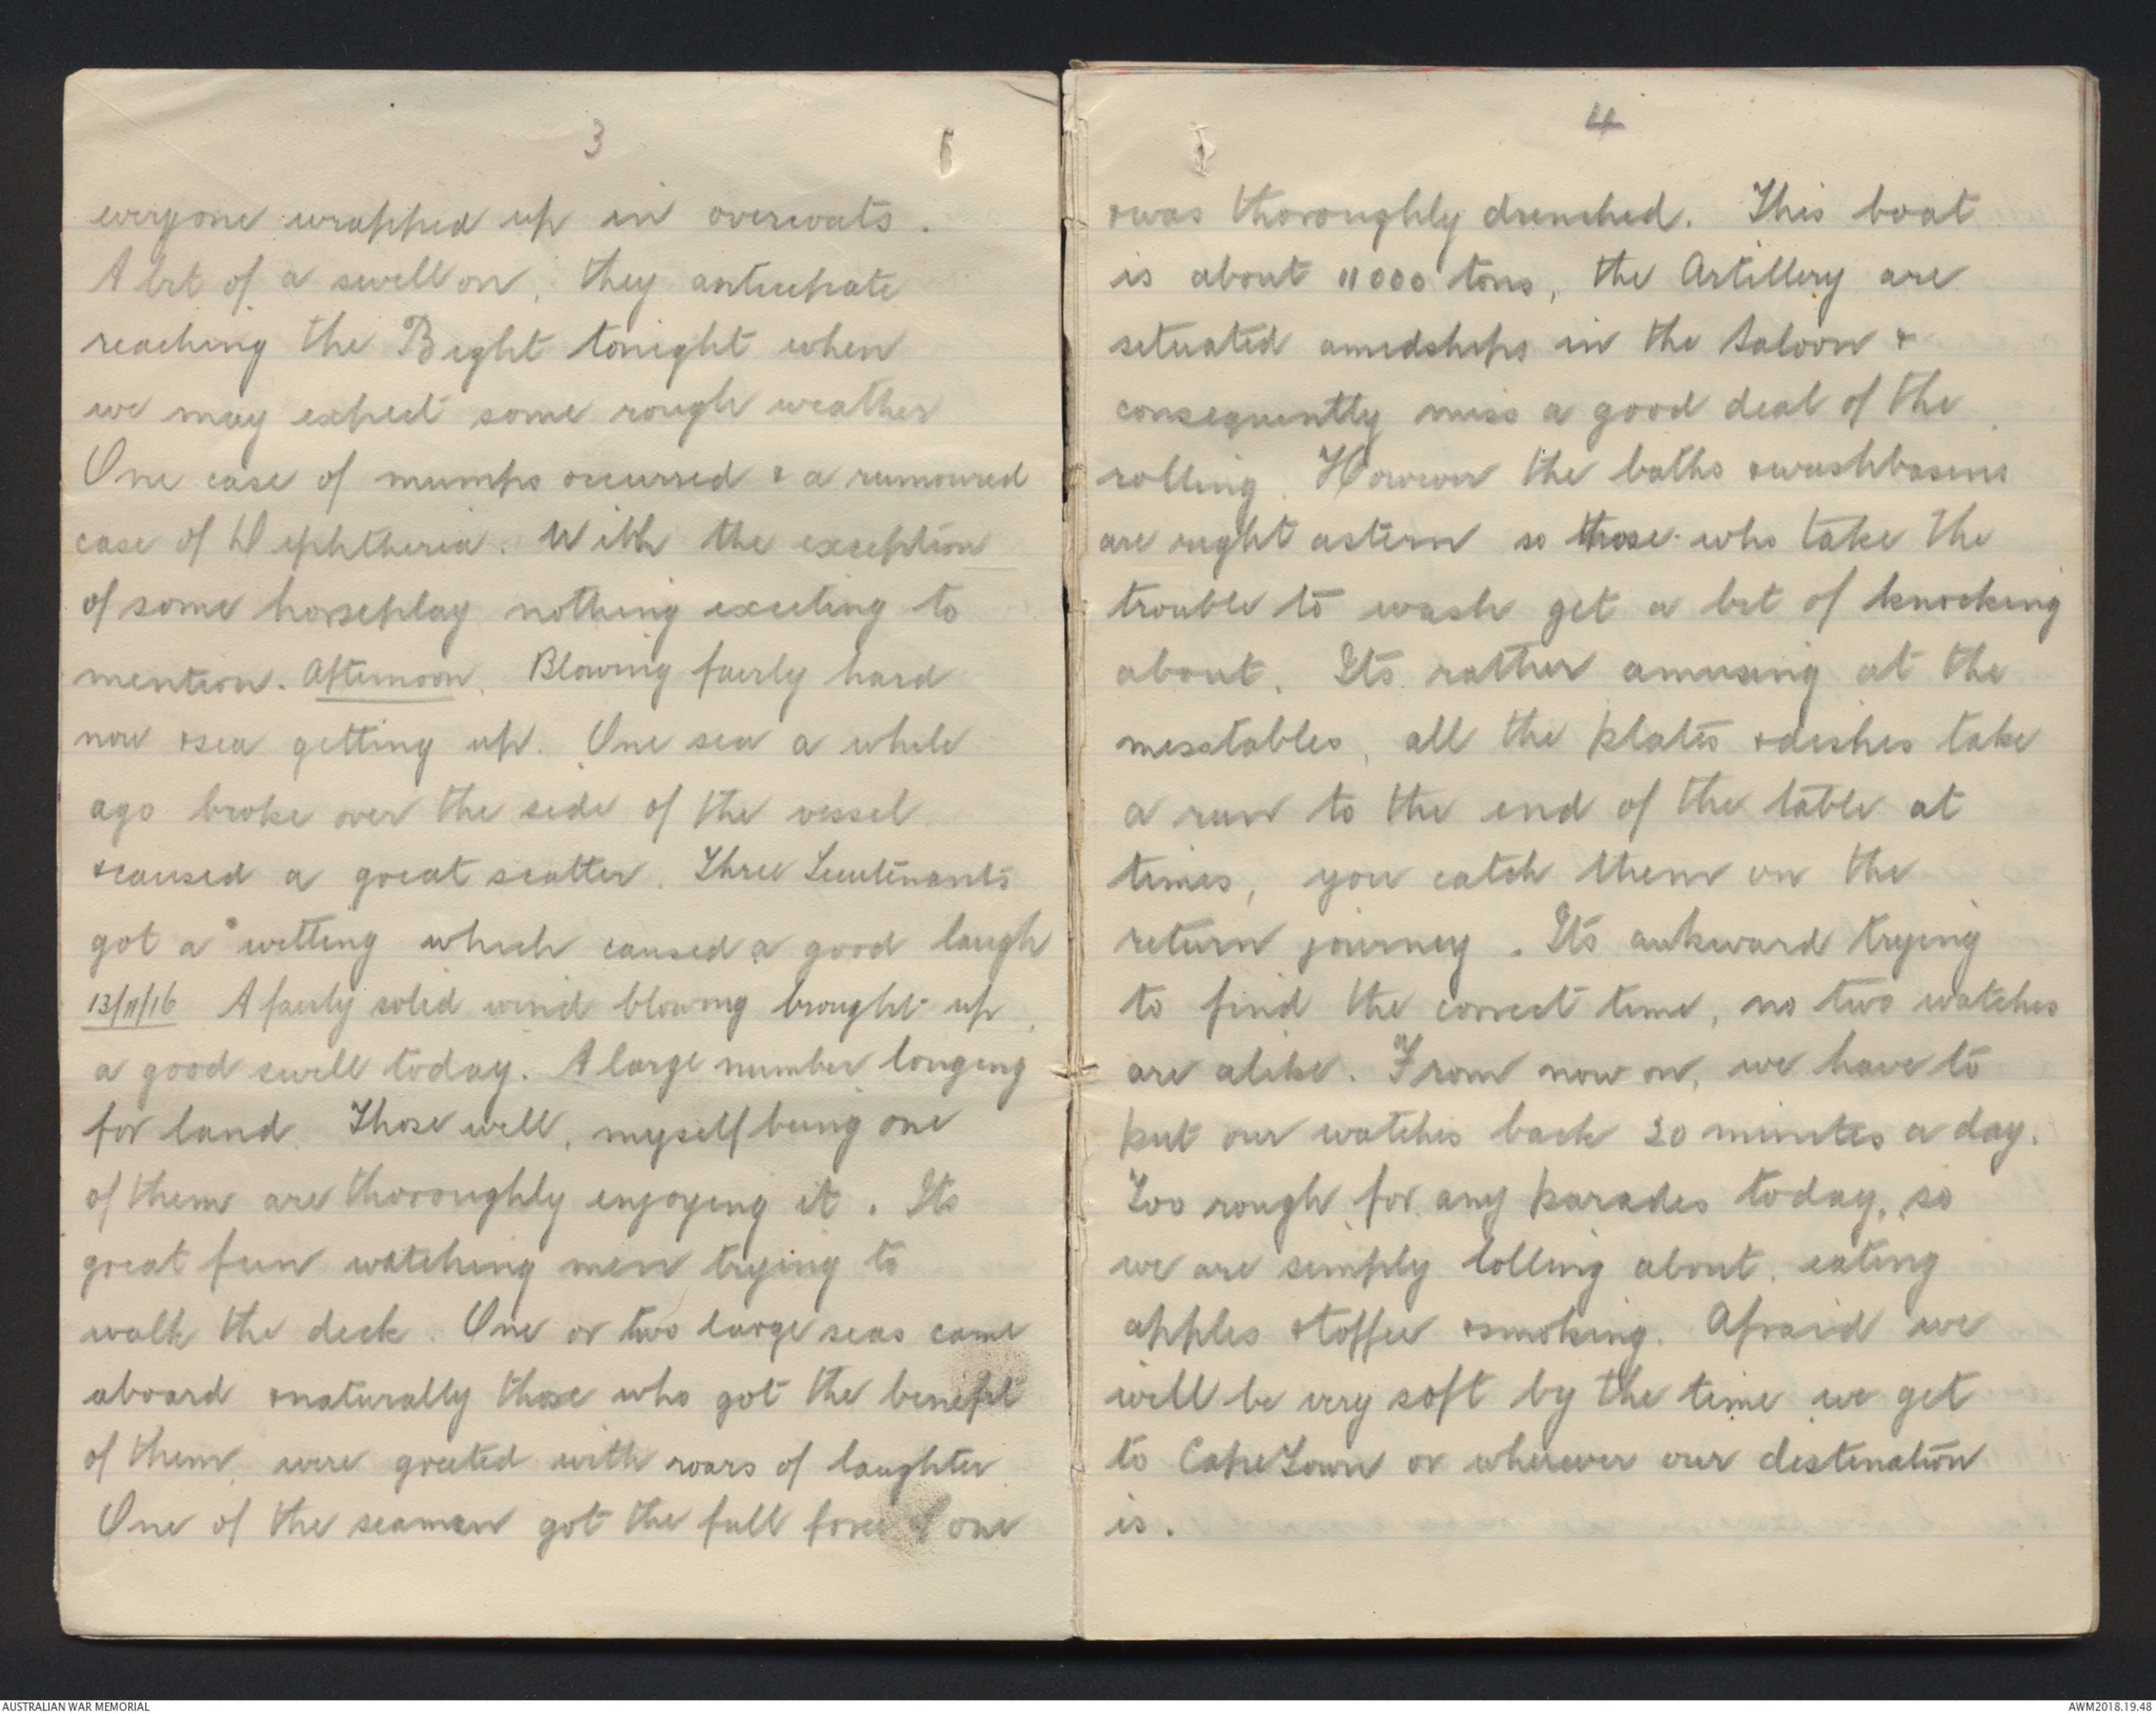 3
everyone wrapped up in overcoats.
A bit of a swell on, they anticipate
reaching the Bight tonight when
we may expect some rough weather
One case of mumps occurred & a rumoured
case of Diphtheria. With the exception
of some horseplay nothing exciting to
mention. Afternoon. Blowing fairly hard
now & sea getting up. One sea a while
ago broke over the side of the vessel
& caused a great scatter. Three Lieutenants
got a wetting which caused a good laugh
13/11/16 A fairly solid wind blowing brought up
a good swell today. A large number longing
for land. Those well, myself being one
of them are thoroughly enjoying it. Its
great fun watching men trying to
walk the deck. One or two large seas came
aboard & naturally those who got the benefit
of them were greeted with roars of laughter
One of the seaman got the full force of one
4
& was thoroughly drenched. This boat
is about 11000 tons, the Artillery are
situated amidships in the Saloon &
consequently miss a good deal of the
rolling. However the baths & washbasins
are right astern so those who take the
trouble to wash get a bit of knocking
about. Its rather amusing at the
messtables, all the plates & dishes take
a run to the end of the table at
times, you catch them on the
return journey. Its awkward trying
to find the correct time, no two watches
are alike. From now on, we have to
put our watches back 20 minutes a day.
Too rough for any parades today, so
we are simply lolling about, eating
apples & toffee & smoking. Afraid we
will be very soft by the time we get
to Cape Town or wherever our destination
is.
AUSTRALIAN WAR MEMORIAL
AWM2018.19.48